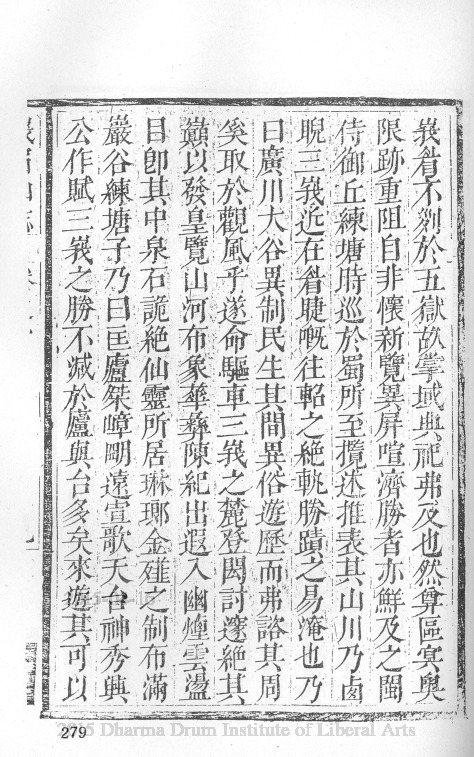 峩眉不列於五嶽故掌域典祀弗及也然尊區寞奥
限跡重阻自非懷新覽異屏喧濟勝者亦鮮及之閩
侍御丘練塘時巡於蜀所至攬述推表其山川乃鹵
睨三峩近在眉睫嘅往軺之絶軌勝蹟之易淹也乃
曰廣川大谷異制民生其間異俗遊歷而弗諮其周
奚取於觀風乎遂命驅車三峩之麓登閎討邃絶其
巔以發皇覽山河布象奉彞陳紀出遐入幽煙雲盪
目卽其中泉石詭絶仙靈所居琳瑯金碓之制布滿
巖谷練塘子乃曰匡廬桀嶂朙遠宣歌天台神秀興
公作賦三峩之勝不减於廬與台多矣來遊其可以
峩眉山志 卷
279
2005 Dharma Drum Institute of Liberal Arts